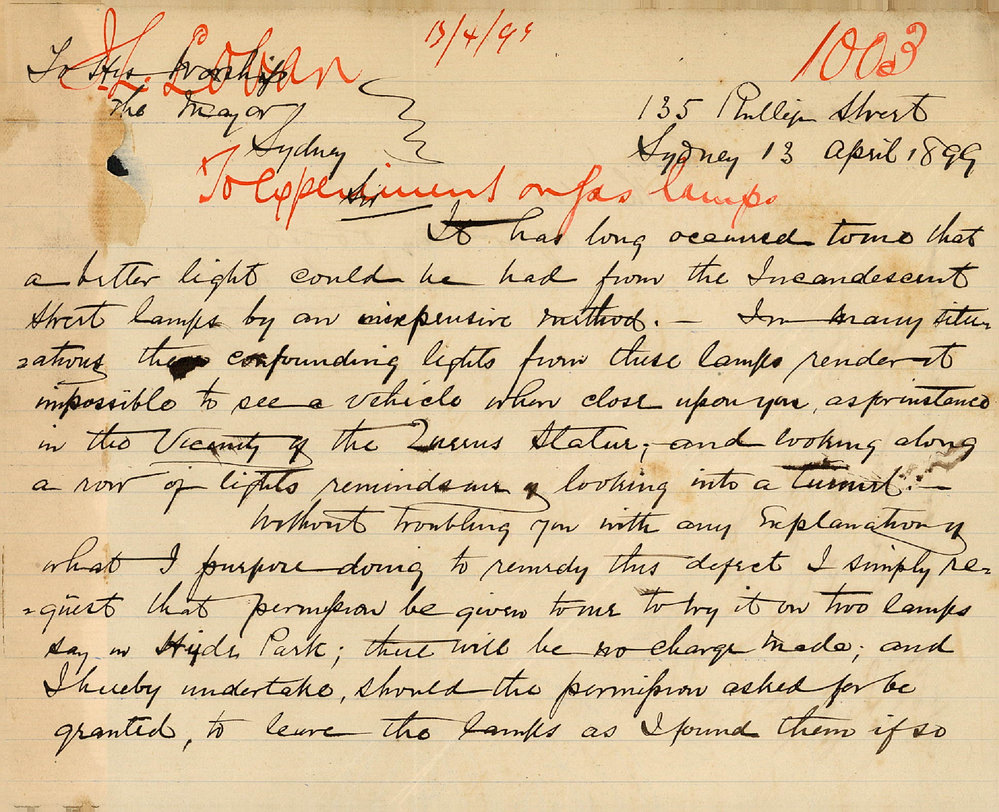 13/4/99
1003
J L Loban
To His Worship
the Mayor
Sydney
135 Phillip Street
Sydney 13 April 1899
To experiment on gas lamps
Sir
It has long occurred to me that
a better light could be had from the Incandescent
Street lamps by an inexpensive method. — In many situ-
-ations the confounding lights from these lamps render it
impossible to see a vehicle when close upon you, as for instance
in the Vicinity of the Queens Statue; and looking along
a row of lights reminds me of looking into a tunnel. —
Without troubling you with any Explanation of
what I purpose doing to remedy this defect I simply re-
-quest that permission be given to me to try it on two lamps
say in Hyde Park; there will be no charge made; and
I hereby undertake, should the permission asked for be
granted, to leave the lamps as I found them if so